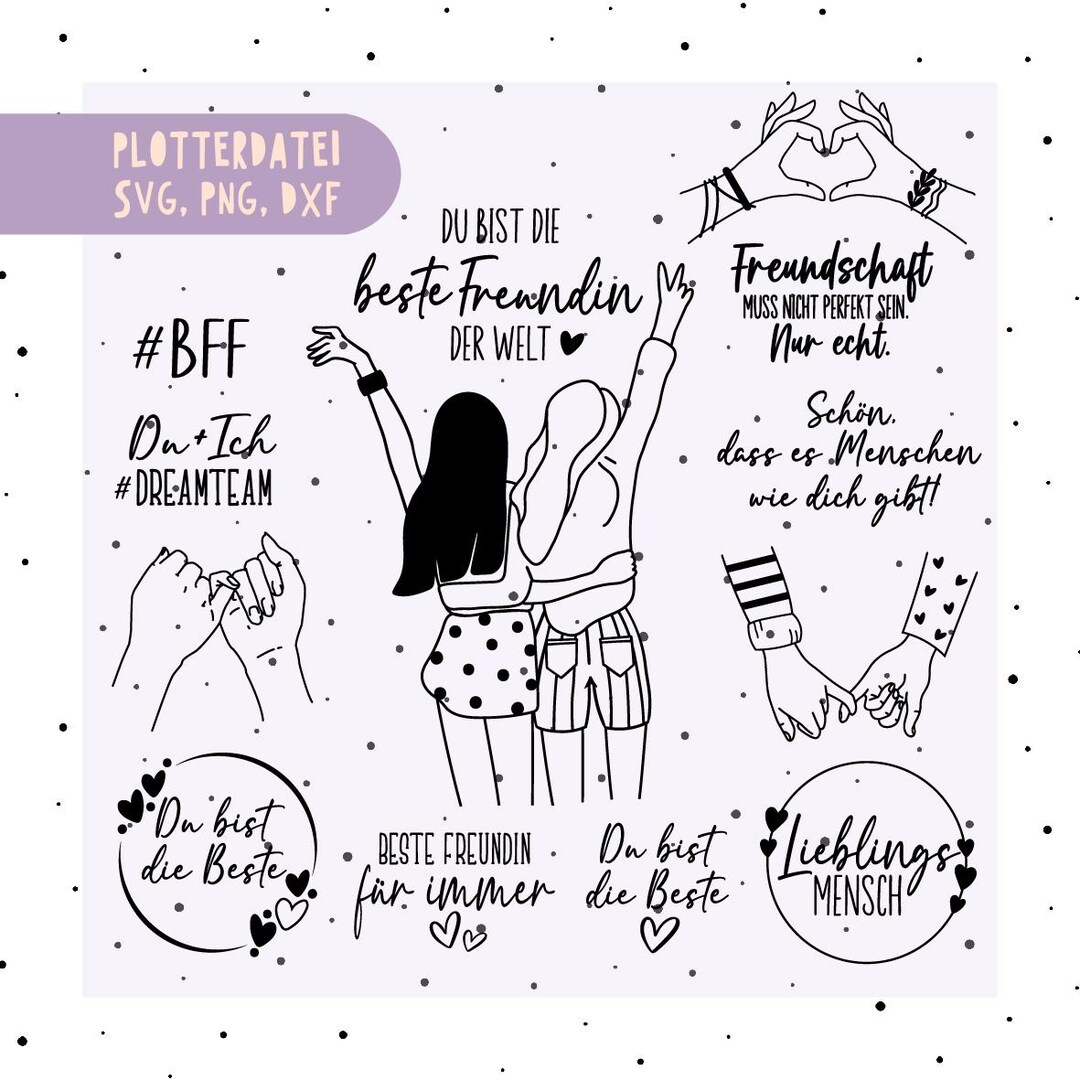 PLOTTERDATEI
SVG, PNG, DXF
DU BIST DIE
beste Freundin
DER WELT
Freundschaft
MUSS NICHT PERFEKT SEIN.
Nur echt.
#BFF
Du + Ich
#DREAMTEAM
Schön,
dass es Menschen
wie dich gibt!
Du bist
die Beste
BESTE FREUNDIN
für immer
Du bist
die Beste
Lieblings
MENSCH